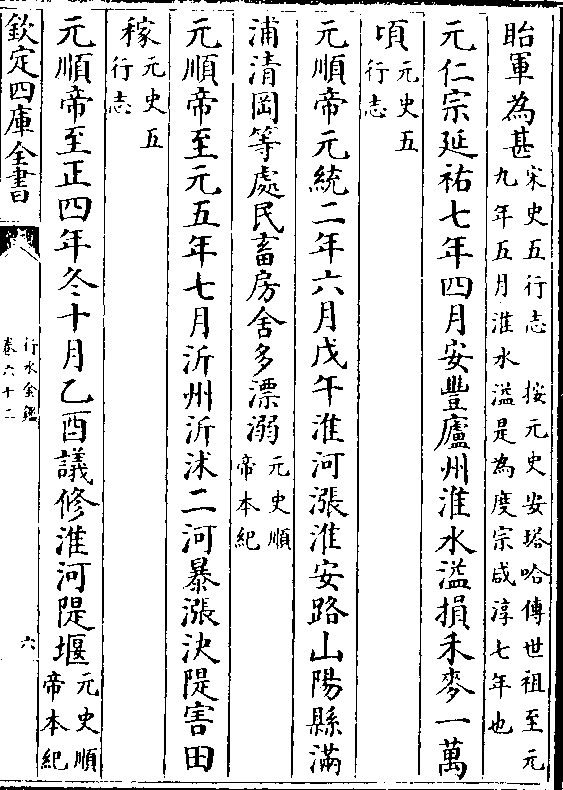 眙軍為甚宋史五行志　按元史安塔哈傳世祖至元九年五月淮水溢是為度宗咸淳七年也
元仁宗延祐七年四月安豐廬州淮水溢損禾麥一萬
頃元史五行志
元順帝元統二年六月戊午淮河漲淮安路山陽縣滿
浦清岡等處民畜房舍多漂溺元史順帝本紀
元順帝至元五年七月沂州沂沭二河暴漲決隄害田
稼元史五行志
元順帝至正四年冬十月乙酉議修淮河隄堰元史順帝本紀
欽定四庫全書
行水金鑑
卷六十二
六